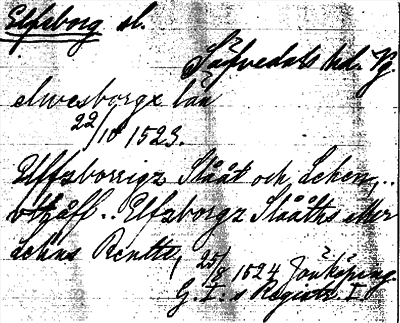 Elfsborg sl.
Säfvedals hd. Vg.
elwesborgx län
22/10 1523.
Elfzborrigz Slååt och Lehen,..
vthåff. Elfzborgz Slååths eller
Lehns Rentte, 25/8 1524 Jönköping.
G. I:s Registr. I